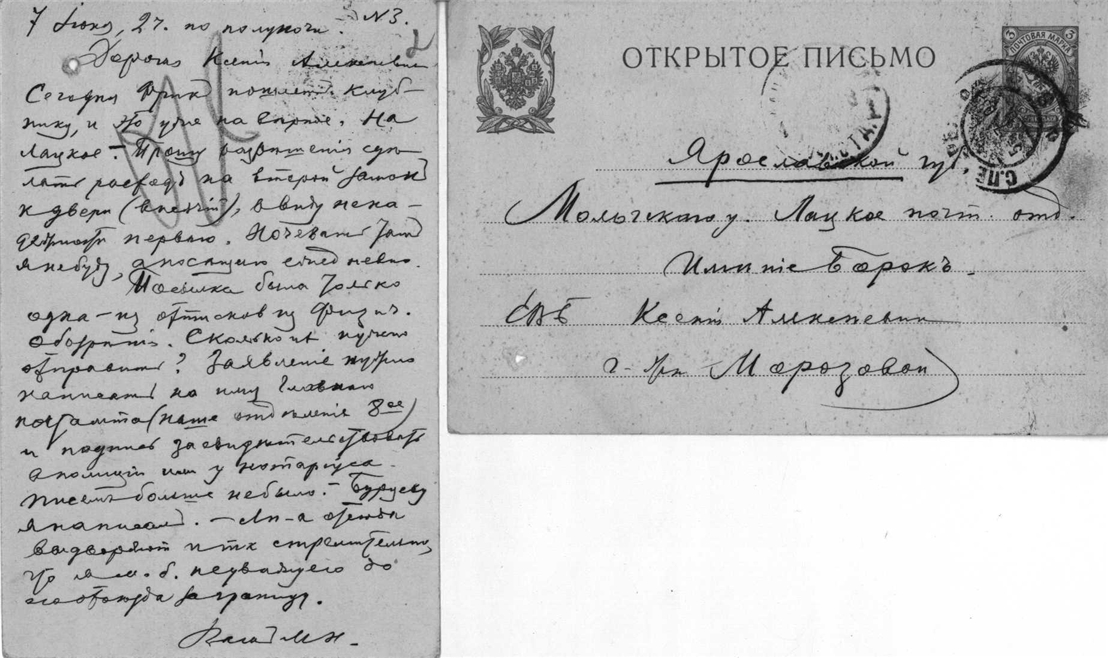 7 июня, 2 ч. по полуночи. N3.
Дорогая Ксенія Алексѣевна
Сегодня Фрик пошлет клуб-
нику, и это уже на Борок. На
Лацкое. Прошу разрѣшенія сдѣ-
лать расход на второй замок
к двери (висячій), в виду нена-
дежности перваго. Ночевать там
я не буду, а посѣщаю ежедневно.
Посылка была только
одна - из оттисков из Физич.
Обозрѣнія. Сколько их нужно
отправить? Заявленіе нужно
написать на имя Главнаго
почтамта (наше отдѣленіе 8ое)
и подпись засвидѣтельствовать
в полиціи или у нотаріуса.
Писем больше не было.
я написал.
что я м. б. не увижу его до
его отъѣзда за границу.
ОТКРЫТОЕ ПИСЬМО
ПОЧТОВАЯ МАРКА
3 3
С.ПЕ
Ярославской губ.
Мологскаго у. Лацкое почт. отд.
Имѣніе Борокъ.
ЕВБ Ксеніи Алексѣевнѣ
г-жѣ Морозовой